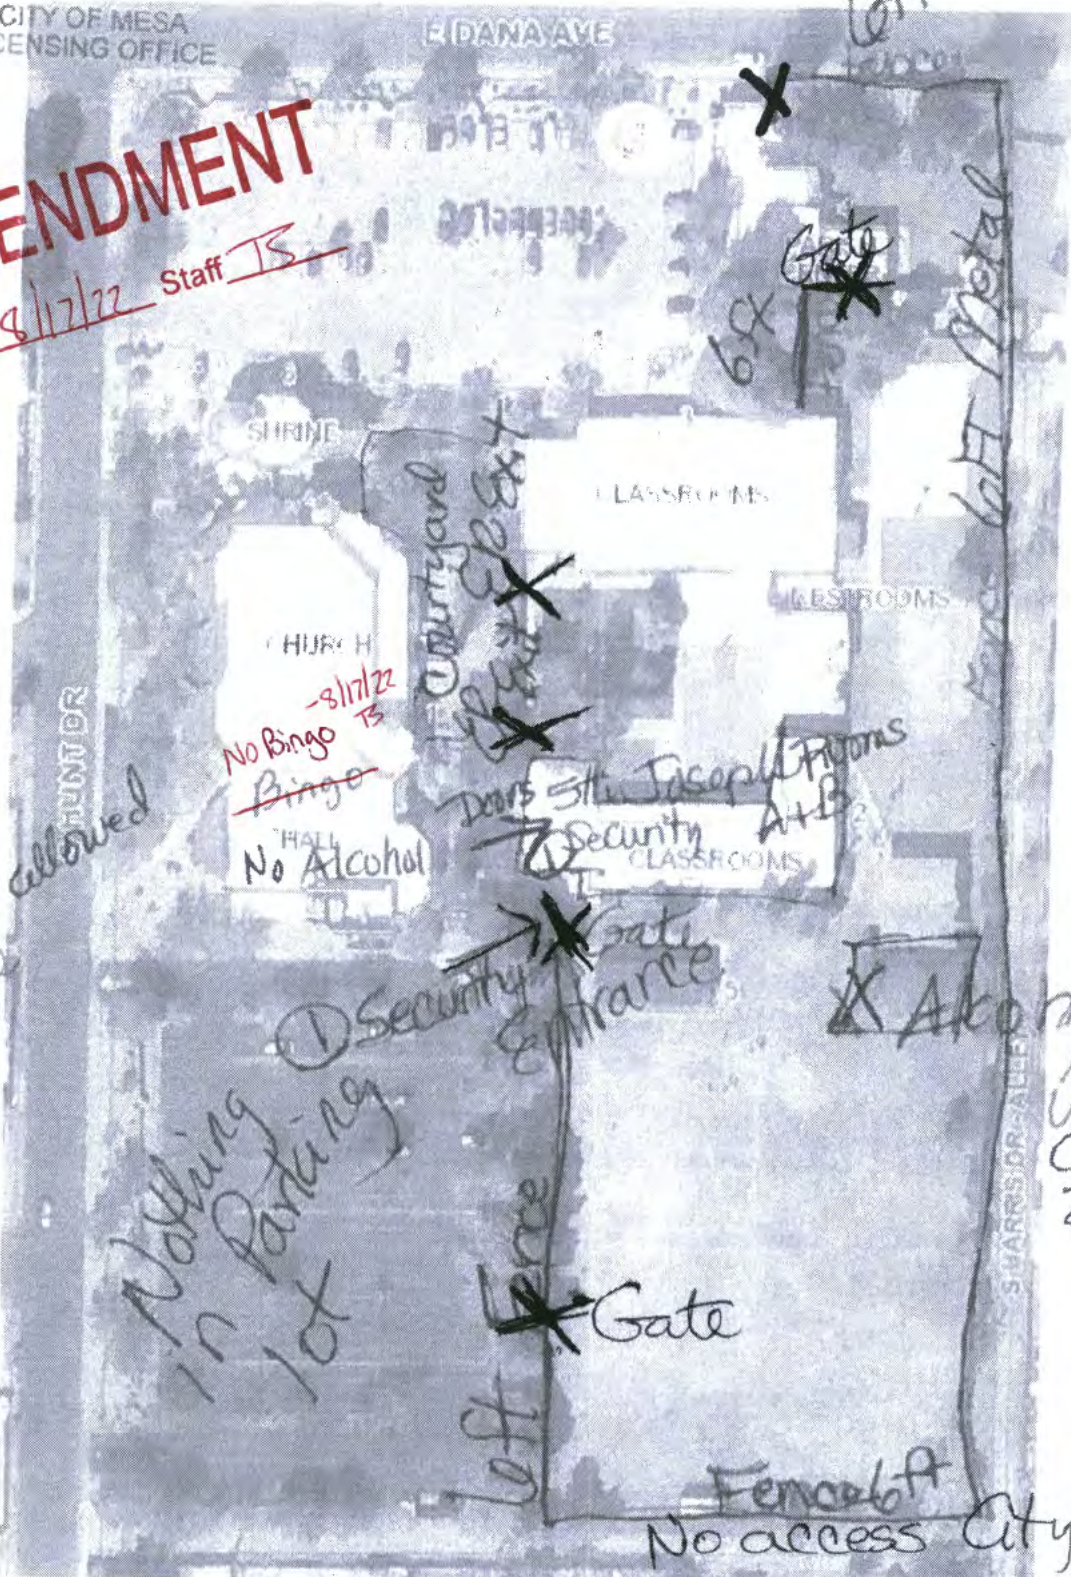 CITY OF MESA
CENSING OFFICE
E DANA AVE
ENDMENT
8/17/22 Staff TS
Gate
6ft
6ft Metal
Fence
SHRINE
CLASSROOMS
Courtyard
ER Exit
ER Exit
RESTROOMS
CHURCH
-8/17/22
TS
No Bingo
Bingo
HALL
No Alcohol
HUNT DR
allowed
Doors
St. Joseph Rooms
A+B
① Security
CLASSROOMS
Gate
Entrance
① Security
X Alco
S HARRIS DR-ALLEY
Nothing
in Parking
lot
Fence
Gate
6ft
Fence 6ft
No access City